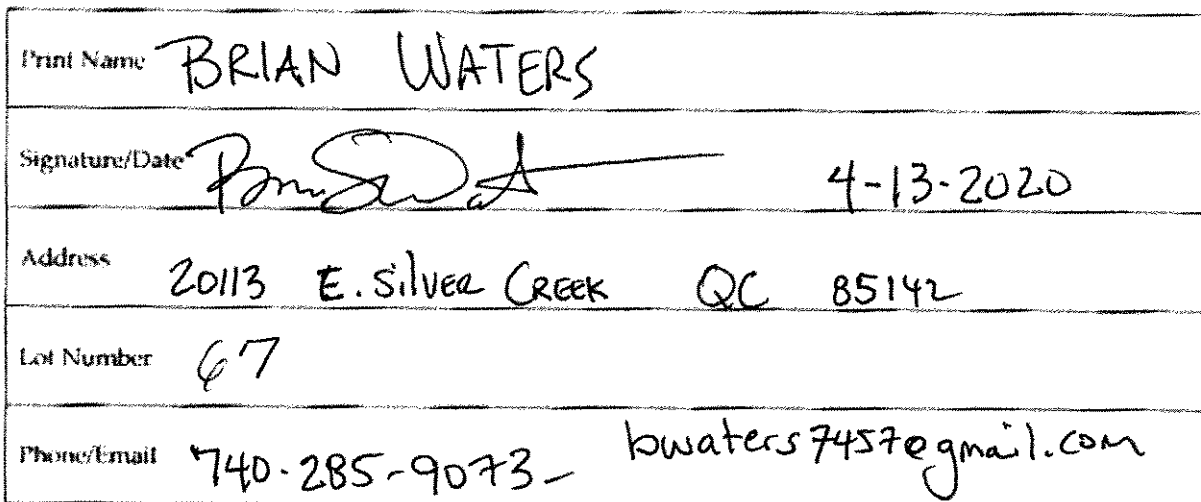 Print Name BRIAN WATERS
Signature/Date 4-13-2020
Address 20113 E. Silver Creek QC 85142
Lot Number 67
Phone/Email 740-285-9073- bwaters7457@gmail.com